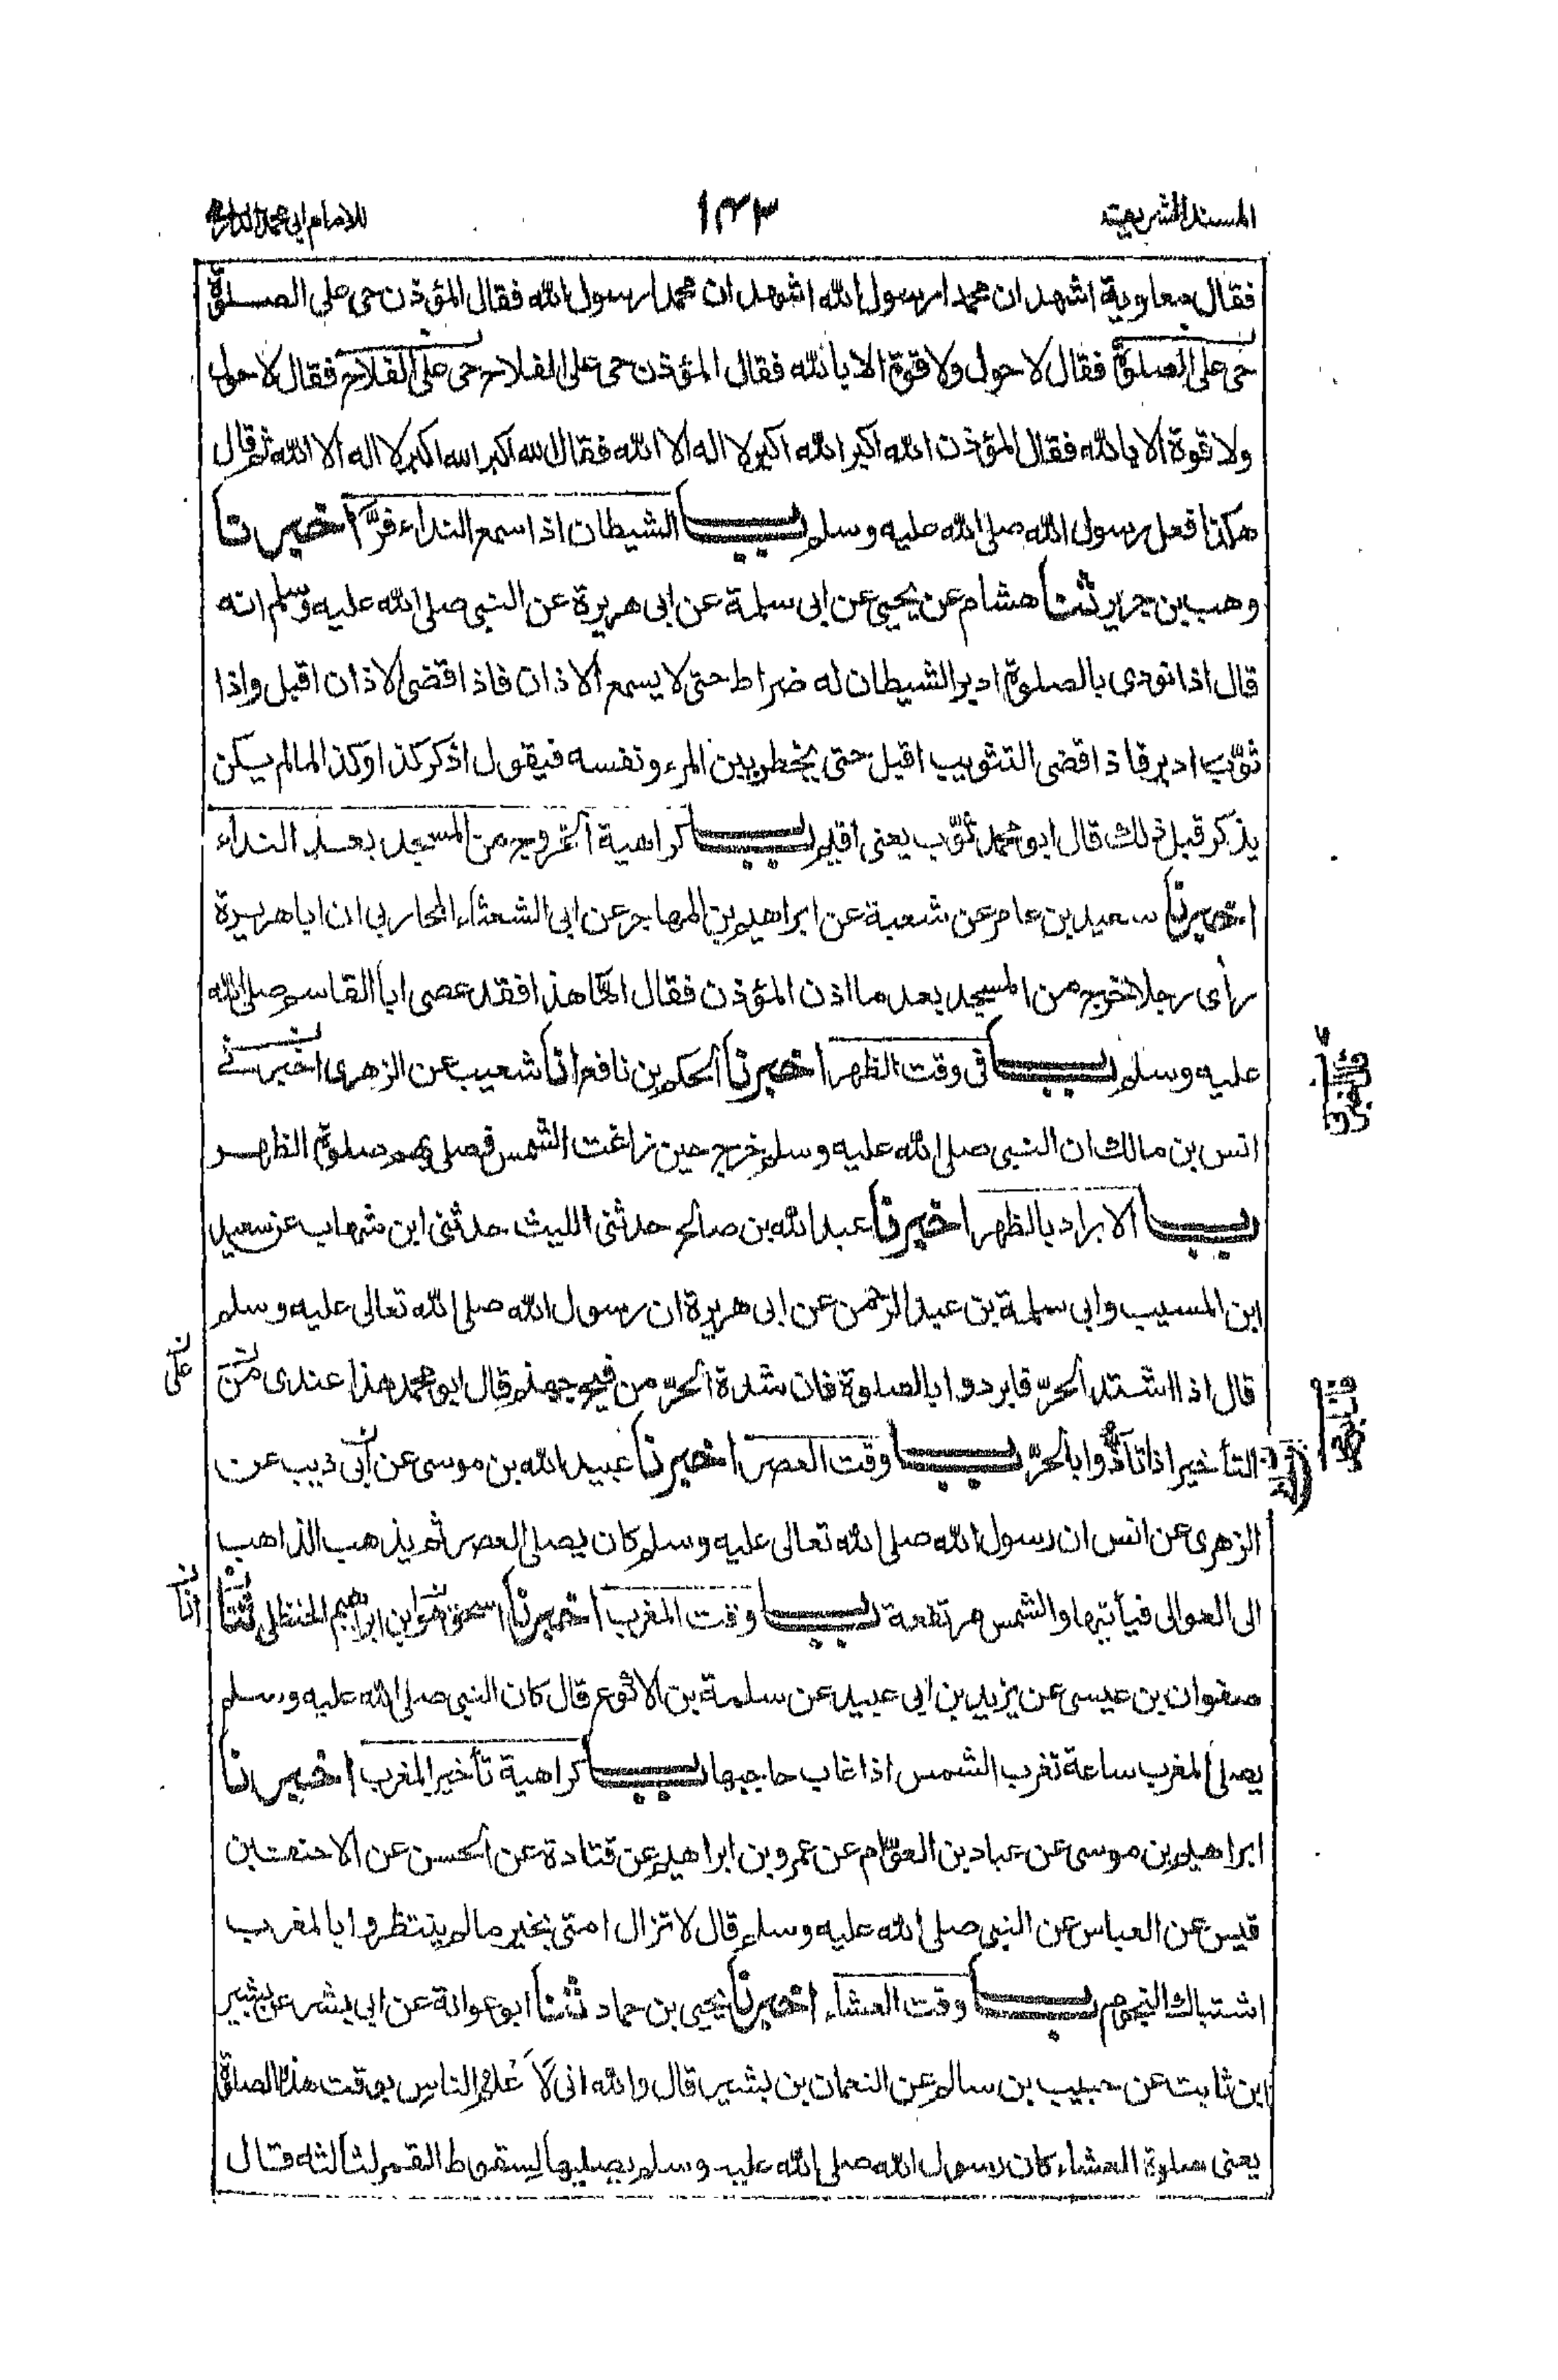 المسند الشريف
١٤٣
للامام ابي محمد الدارمي
فقال معاوية اشهد ان محمدا رسول الله اشهد ان محمدا رسول الله فقال المؤذن حى على الصلوة
حى على الصلوة فقال لا حول ولا قوة الا بالله فقال المؤذن حى على الفلاح حى على الفلاح فقال لا حول
ولا قوة الا بالله فقال المؤذن الله اكبر الله اكبر لا اله الا الله فقال الله اكبر الله اكبر لا اله الا الله ثم قال
هكذا فعل رسول الله صلى الله عليه وسلم باب الشيطان اذا سمع النداء فرّ اخبرنا
وهب بن جرير ثنا هشام عن يحيى عن ابى سلمة عن ابى هريرة عن النبى صلى الله عليه وسلم انه
قال اذا نودى بالصلوة ادبر الشيطان له ضراط حتى لا يسمع الاذان فاذا قضى الاذان اقبل واذا
ثوّب ادبر فاذا قضى التثويب اقبل حتى يخطر بين المرء ونفسه فيقول اذكر كذا وكذا لما لم يكن
يذكر قبل ذلك قال ابو محمد ثوّب يعنى اقيم باب كراهية الخروج من المسجد بعد النداء
اخبرنا سعيد بن عامر عن شعبة عن ابراهيم بن المهاجر عن ابى الشعثاء المحاربى ان ابا هريرة
رأى رجلا خرج من المسجد بعد ما اذن المؤذن فقال امّا هذا فقد عصى ابا القاسم صلى الله
عليه وسلم باب فى وقت الظهر اخبرنا الحكم بن نافع انا شعيب عن الزهرى اخبرنى
انس بن مالك ان النبى صلى الله عليه وسلم خرج حين زاغت الشمس فصلى بهم صلوة الظهر
باب الابراد بالظهر اخبرنا عبد الله بن صالح حدثنى الليث حدثنى ابن شهاب عن سعيد
ابن المسيب وابى سلمة بن عبد الرحمن عن ابى هريرة ان رسول الله صلى الله تعالى عليه وسلم
قال اذا اشتد الحرّ فابردوا بالصلوة فان شدة الحرّ من فيح جهنم قال ابو محمد هذا عندى من
على
التأخير اذا تأذّوا بالحرّ باب وقت العصر اخبرنا عبيد الله بن موسى عن ابى ذيب عن
الزهرى عن انس ان رسول الله صلى الله تعالى عليه وسلم كان يصلى العصر ثم يذهب الذاهب
الى العوالى فيأتيها والشمس مرتفعة باب وقت المغرب اخبرنا اسحق هو ابن ابراهيم الحنظلى ثنا
انا
صفوان بن عيسى عن يزيد بن ابى عبيد عن سلمة بن الاكوع قال كان النبى صلى الله عليه وسلم
يصلى المغرب ساعة تغرب الشمس اذا غاب حاجبها باب كراهية تأخير المغرب اخبرنا
ابراهيم بن موسى عن عباد بن العوّام عن عمرو بن ابراهيم عن قتادة عن الحسن عن الاحنف بن
قيس عن العباس عن النبى صلى الله عليه وسلم قال لا تزال امتى بخير ما لم ينتظروا بالمغرب
اشتباك النجوم باب وقت العشاء اخبرنا يحيى بن حماد ثنا ابو عوانة عن ابى بشر عن بشير
ابن ثابت عن حبيب بن سالم عن النعمان بن بشير قال والله انى لاَعلم الناس بوقت هذه الصلوة
يعنى صلوة العشاء كان رسول الله صلى الله عليه وسلم يصليها لسقوط القمر لثالثة قال